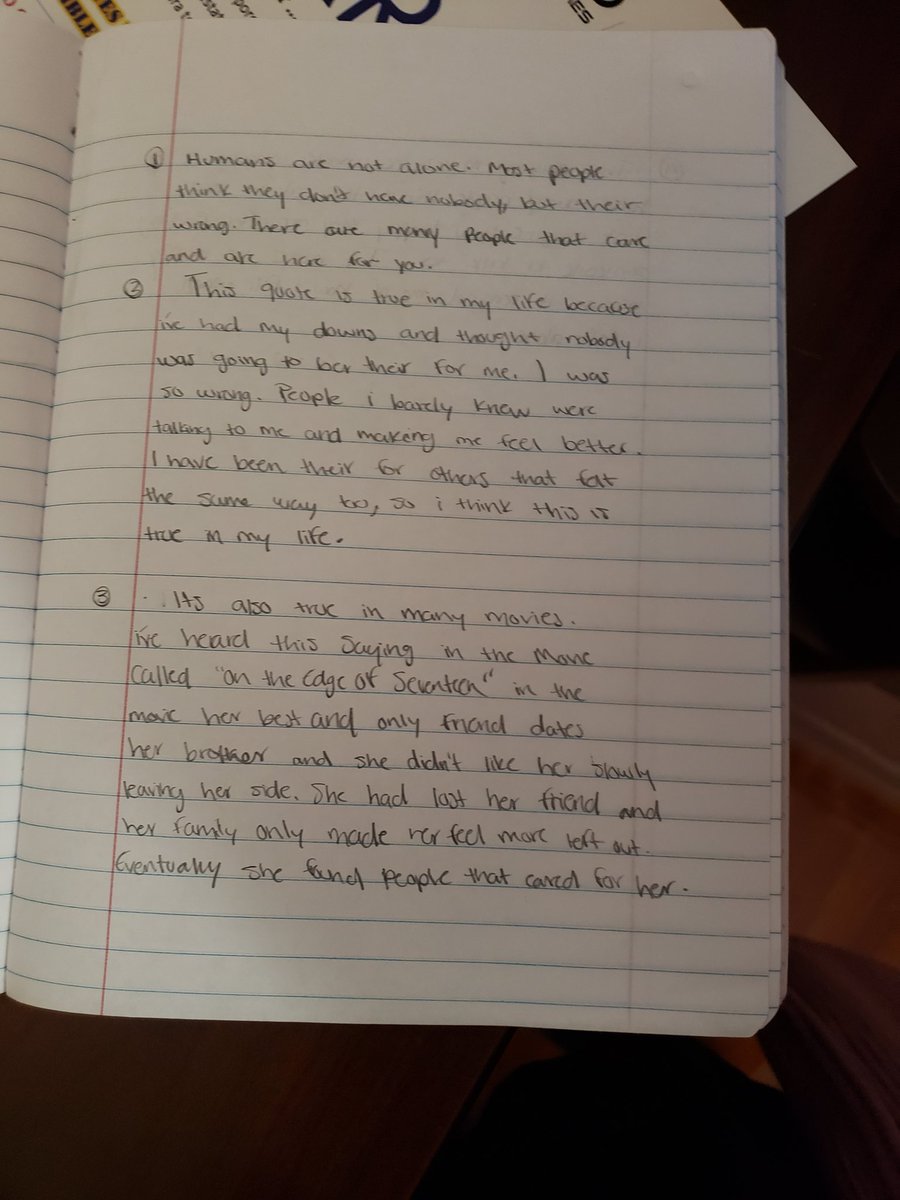 ① Humans are not alone. Most people
think they don't have nobody, but their
wrong. There are many people that care
and are here for you.
② This quote is true in my life because
i've had my downs and thought nobody
was going to be their for me. I was
so wrong. People i barely knew were
talking to me and making me feel better.
I have been their for others that felt
the same way too, so i think this is
true in my life.
③ Its also true in many movies.
i've heard this saying in the movie
called "on the edge of Seventeen" in the
movie her best and only friend dates
her brother and she didn't like her slowly
leaving her side. She had lost her friend and
her family only made her feel more left out.
Eventually she found people that cared for her.